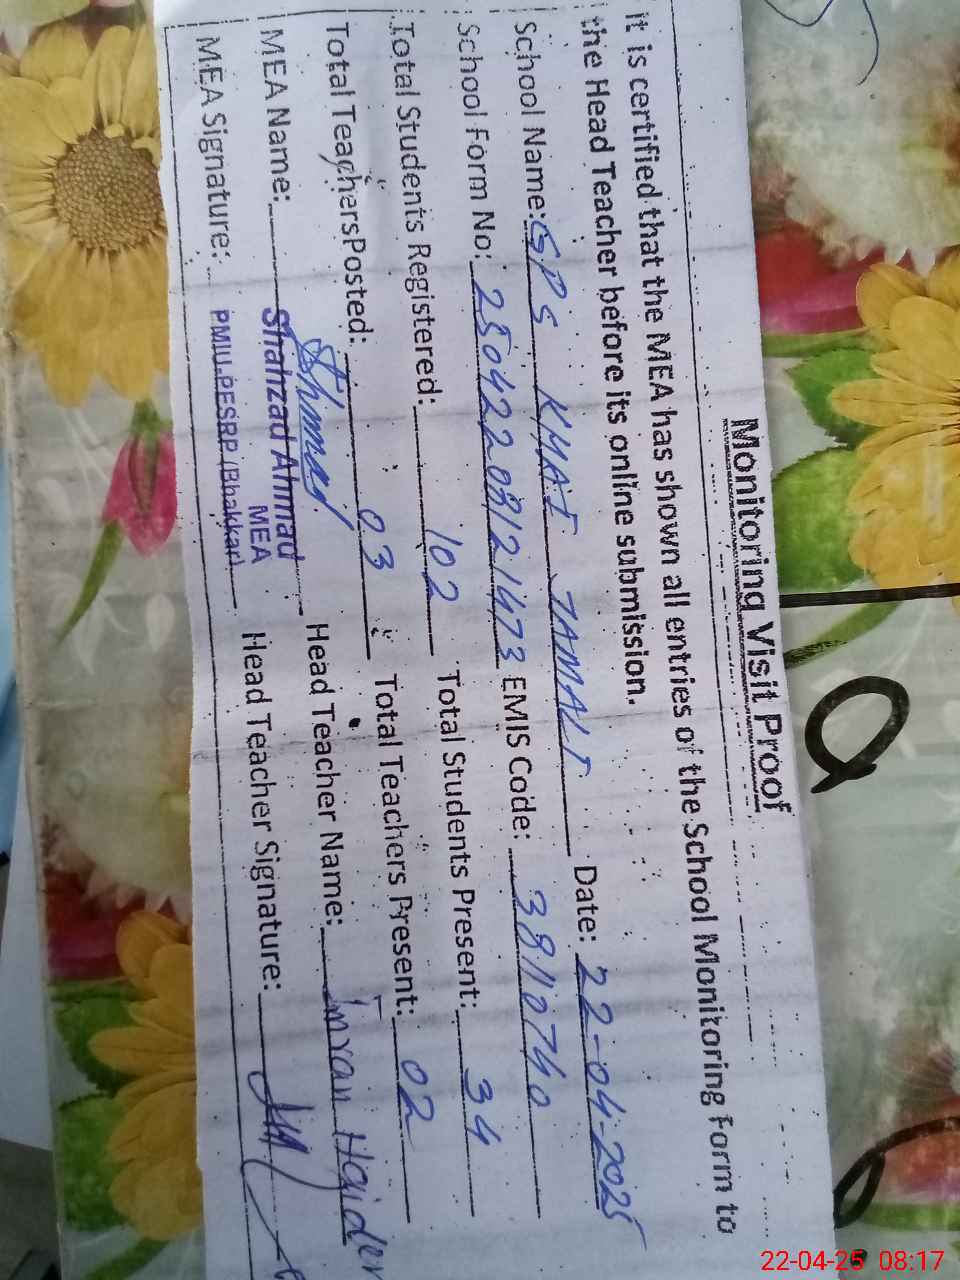 Monitoring Visit Proof
It is certified that the MEA has shown all entries of the School Monitoring Form to
the Head Teacher before its online submission.
School Name: GPS KHAI JAMALI Date: 22-04-2025
School Form No: 25042208121473 EMIS Code: 38110740
Total Students Registered: 102 Total Students Present: 34
Total Teachers Posted: 03 Total Teachers Present: 02
MEA Name: Shahzad Ahmad Head Teacher Name: Imran Haider
MEA
MEA Signature: PMIU-PESRP (Bhakkar) Head Teacher Signature:
22-04-25 08:17